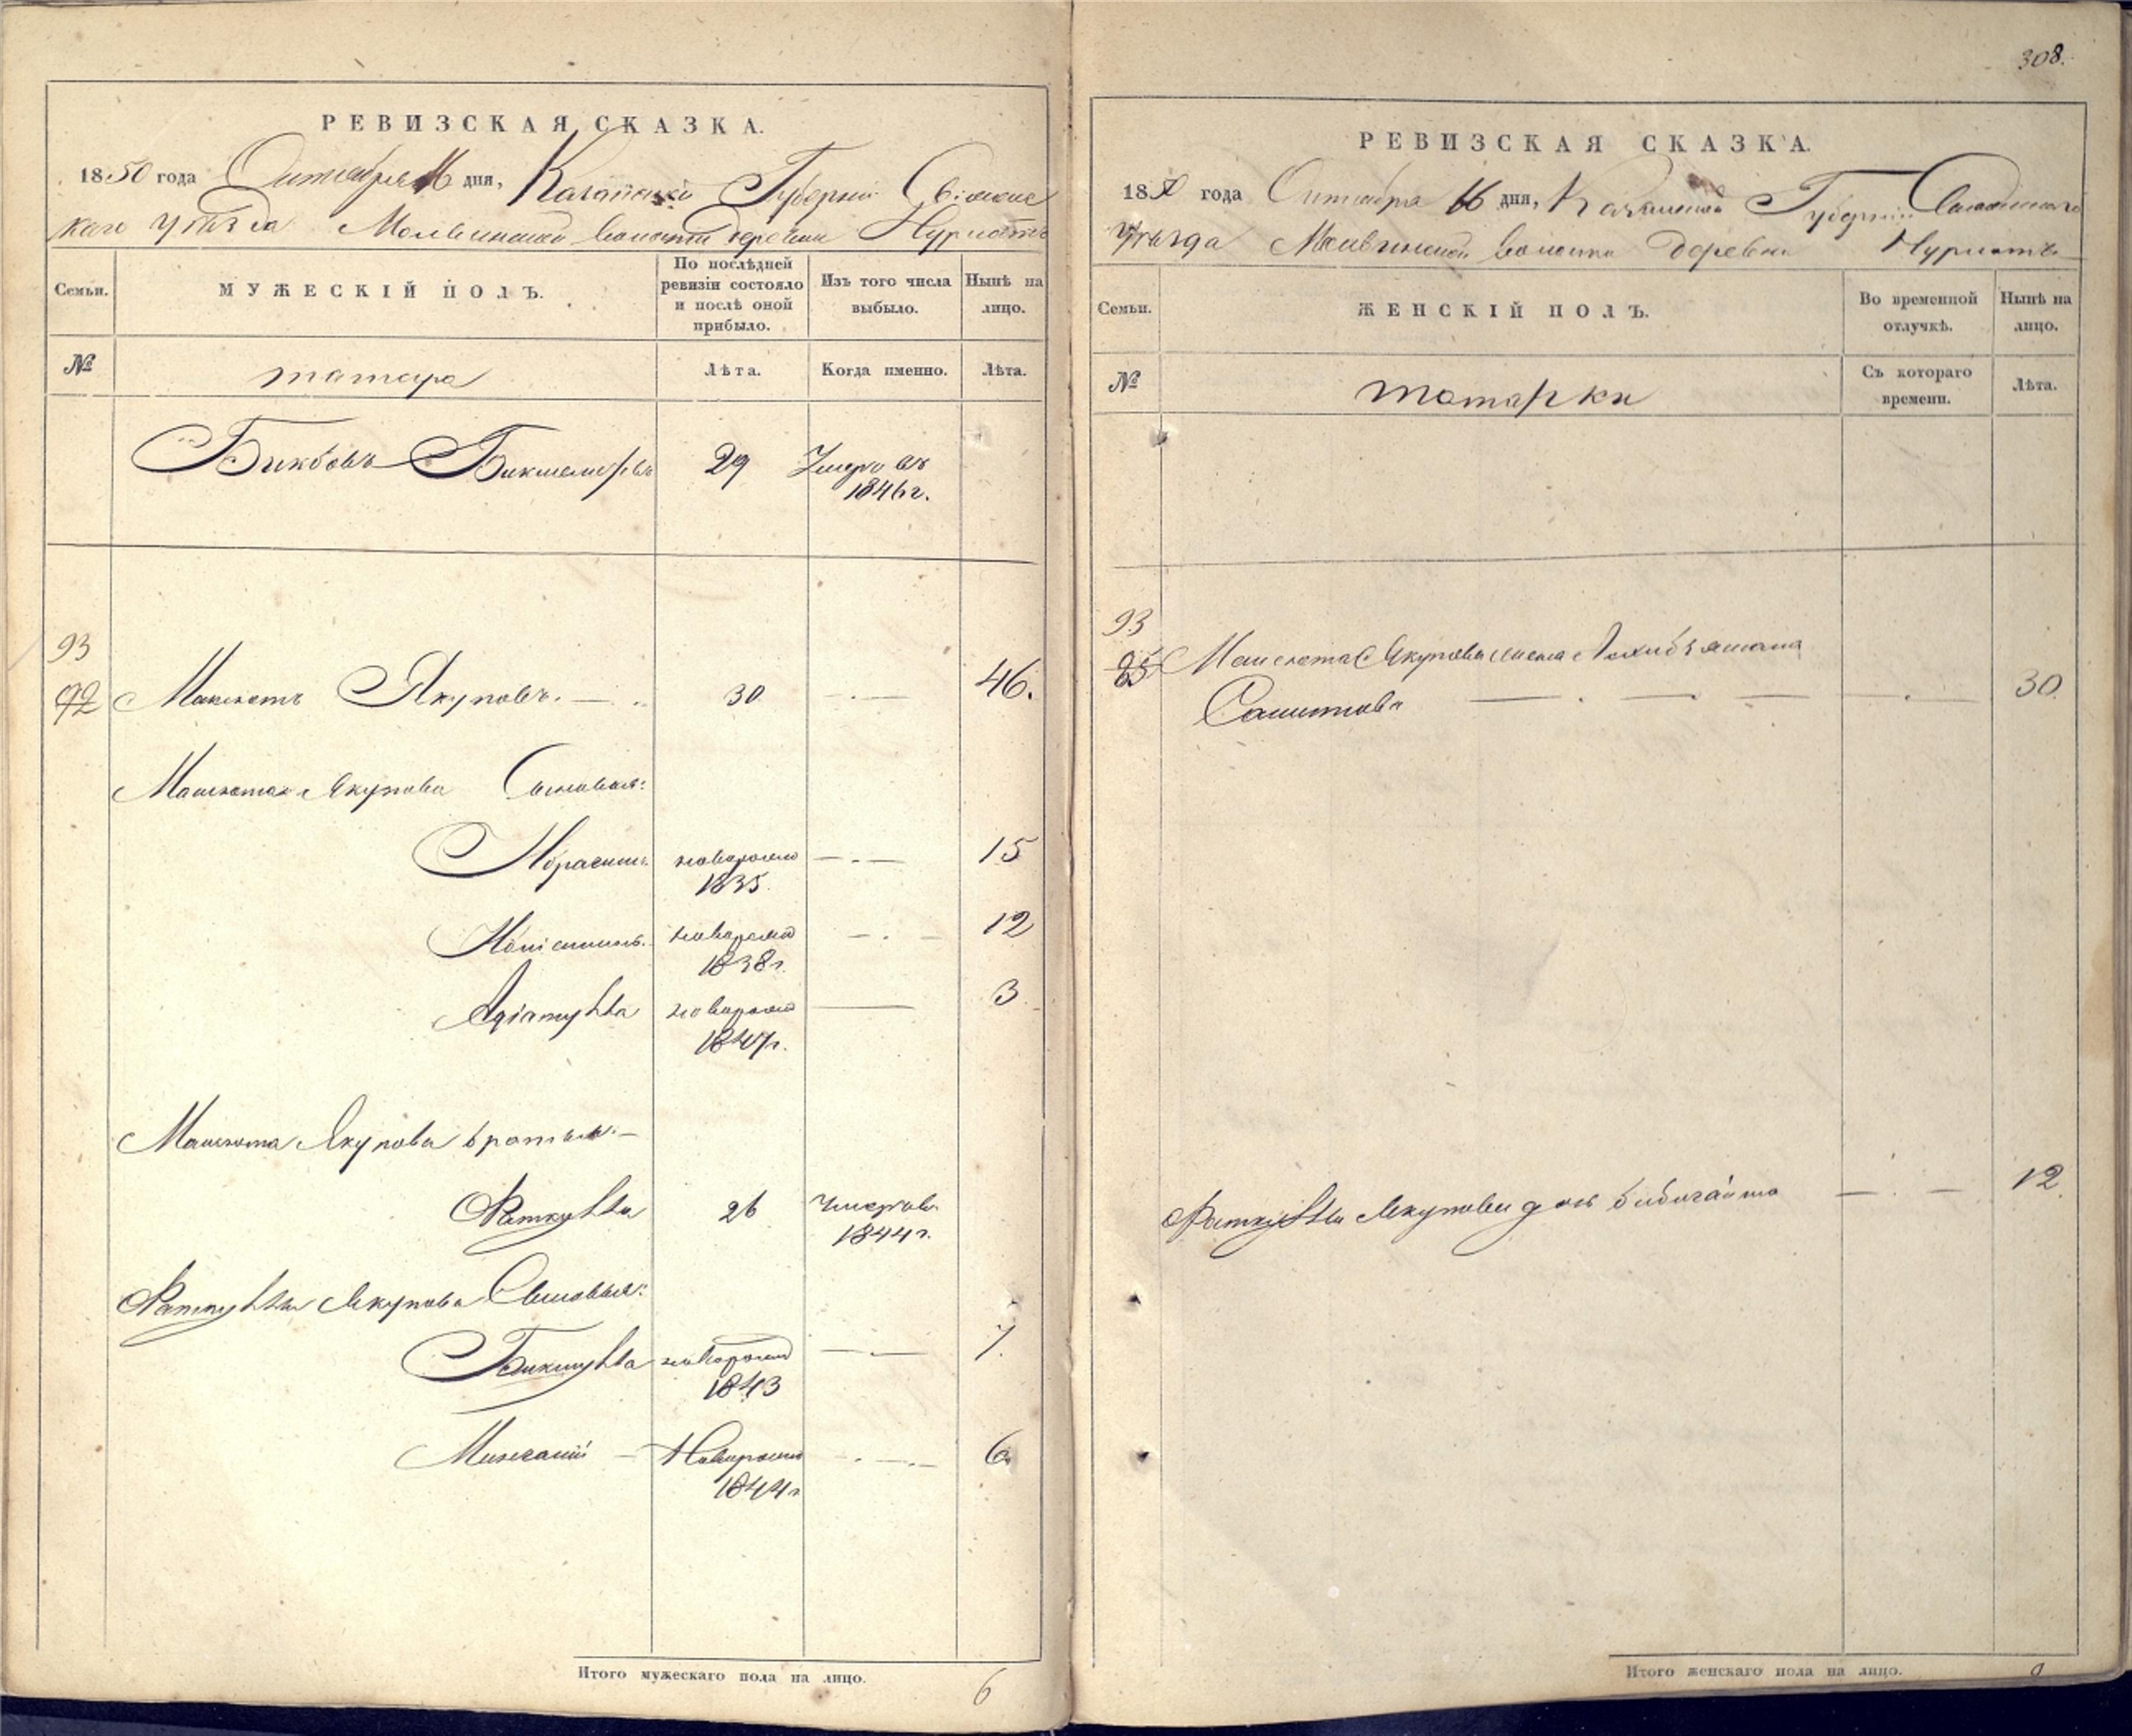 308.
РЕВИЗСКАЯ СКАЗКА.
1850 года Октября 16 дня, Казанской Губернии Свіяжс
каго уѣзда Молвинской волости деревни Нурлатъ
Семьи.
МУЖЕСКІЙ ПОЛЪ.
По послѣдней
ревизіи состояло
и послѣ оной
прибыло.
Изъ того числа
выбыло.
Нынѣ на
лицо.
№
татара
Лѣта.
Когда именно.
Лѣта.
Бикбовъ 29 Умеръ въ
1846г.
93
92 Якуповъ. 30 46.
Якупова Сыновья:
Ибрагимъ новорожд 15
1835
новорожд 12
1838г.
новорожд 3
1847г.
Якупова братья:
Фаткулла 26 Умеръ въ
1844г.
Фаткуллы Якупова Сыновья:
Биккулла новорожд 7.
1843
Новорожд 6.
1844г
Итого мужескаго пола на лицо. 6
РЕВИЗСКАЯ СКАЗКА.
1850 года Октября 16 дня, Казанской Губерніи Свіяжскаго
Уѣзда Молвинской волости деревни Нурлатъ
Семьи.
ЖЕНСКІЙ ПОЛЪ.
Во временной
отлучкѣ.
Нынѣ на
лицо.
№
татарки
Съ котораго
времени.
Лѣта.
93
Якупова жена
30
Фаткуллы Якупова дочь 12
Итого женскаго пола на лицо.